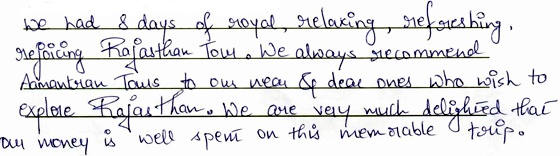 We had 8 days of royal, relaxing, refreshing,
rejoicing Rajasthan Tour. We always recommend
Aamantran Tours to our near & dear ones who wish to
explore Rajasthan. We are very much delighted that
our money is well spent on this memorable trip.